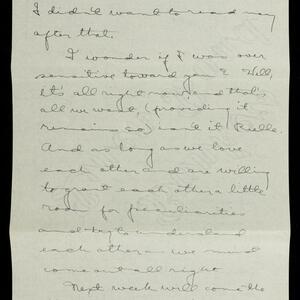 I didn't want to read any
after that.
I wonder if I was over
sensitive toward you? Well,
it's all right now and that's
all we want, (providing it
remains so) isn't it Belle.
And as long as we love
each other and are willing
to grant each other a little
room for peculiarities
and try to understand
each other we must
come out all right.
Next week will come the